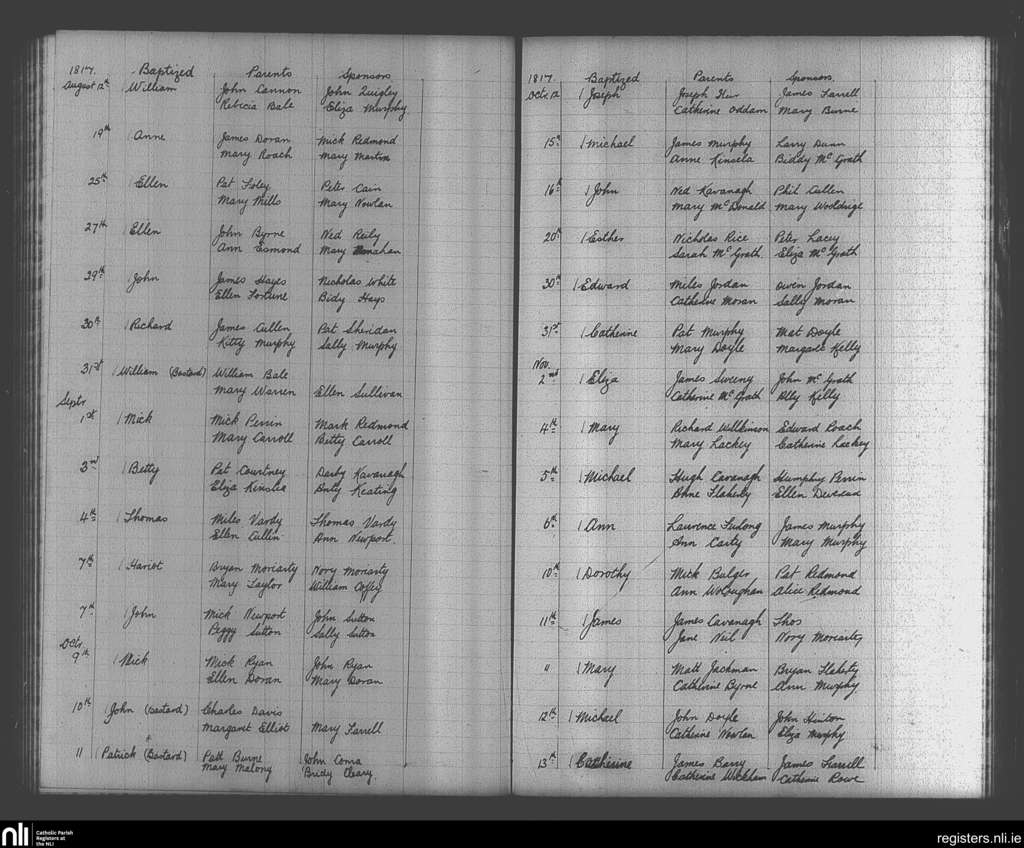 1817. Baptized Parents Sponsors
August 12th William John Cannon John Quigley
Rebicia Bale Eliza Murphy
19th Anne James Doran Mick Redmond
Mary Roach Mary Martin
25th Ellen Pat Foley Peter Cain
Mary Mills Mary Nowlan
27th Ellen John Byrne Ned Reily
Ann Esmond Mary
29th John James Hayes Nicholas White
Ellen Fortune Bidy Hays
30th Richard James Cullen Pat Sheridan
Kitty Murphy Sally Murphy
31st William (Bastard) William Bale
Mary Warren Ellen Sullivan
Septr
1st Mick Mick Perrin Mark Redmond
Mary Carroll Betty Carroll
3rd Betty Pat Courtney Darby Kavanagh
Eliza Kinslia Keating
4th Thomas Miles Vardy Thomas Vardy
Ellen Cullin Ann Newport
7th Hariot Bryan Moriarty Nory Moriarty
Mary Taylor William Coffey
7th John Mick Newport John Sutton
Peggy Sutton Sally Sutton
Octr
9th Mick Mick Ryan John Ryan
Ellen Doran Mary Doran
10th John (Bastard) Charles Davis
Margaret Elliot Mary Farrell
11 Patrick (Bastard) Patt Burne John Coma
Mary Malony Bridy Cleary
1817. Baptized Parents Sponsors
Octr. 12 Joseph Joseph James Farrell
Catherine Oddam Mary Burne
15th Michael James Murphy Larry Dunn
Anne Kinsela Biddy McGrath
16th John Ned Kavanagh Phil Cullen
Mary McDonald Mary Wooldrige
20th Esther Nicholas Rice Peter Lacey
Sarah McGrath Eliza McGrath
30th Edward Miles Jordan Owen Jordan
Catherine Moran Sally Moran
31st Catherine Pat Murphy Mat Doyle
Mary Doyle Margaret Kelly
Nov.
2nd Eliza James Sweeny John McGrath
Catherine McGrath Ally Kelly
4th Mary Richard Willkinson Edward Roach
Mary Lackey Catherine Lackey
5th Michael Hugh Cavanagh Humphry Perrin
Flaherty Ellen Devereux
6th Ann Laurence Furlong James Murphy
Ann Carty Mary Murphy
10th Dorothy Mick Bulger Pat Redmond
Ann Woloughan Alice Redmond
11th James James Cavanagh Thos
Jane Neil Nory Moriartey
11 Mary Matt Jackman Bryan Flaherty
Catherine Byrne Ann Murphy
12th Michael John Doyle John Hinton
Catherine Nowlan Eliza Murphy
13th Catherine James Barry James Farrell
Catherine Wickham Catherine Rowe
nli Catholic Parish
Registers at
the NLI
registers.nli.ie